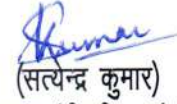 Skumar
(सत्येन्द्र कुमार)